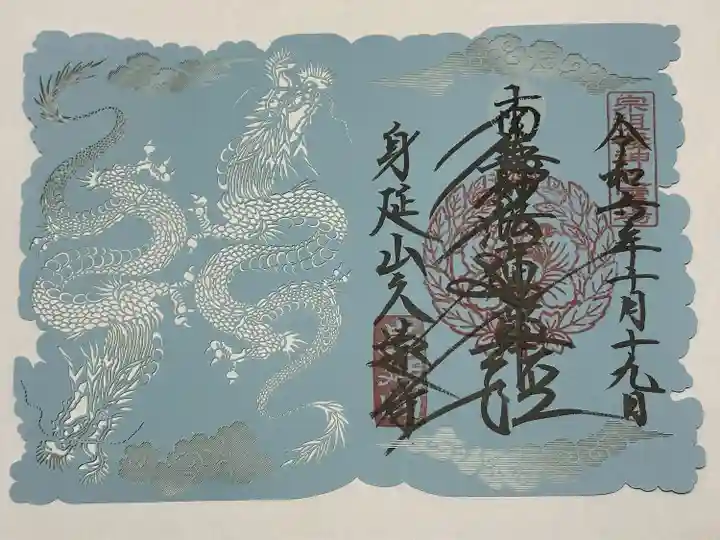 令和六年十一月十九日
南無妙法蓮華経
身延山久遠寺